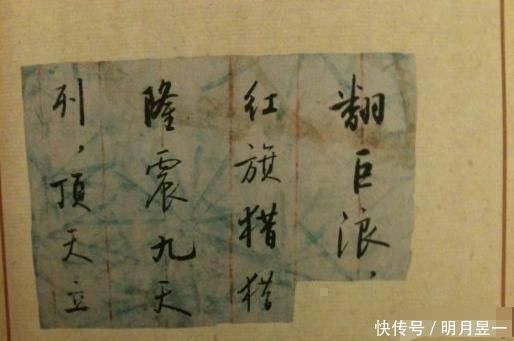 翻巨浪，
红旗猎猎
隆震九天
列，顶天立
快传号／明月昱一